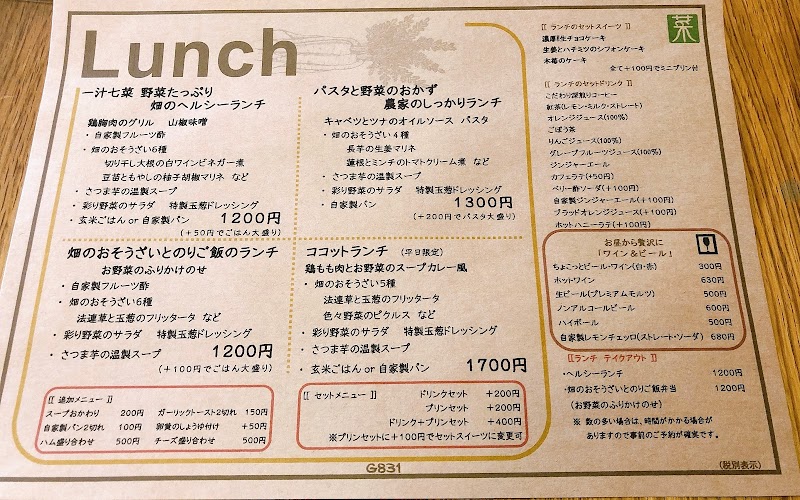 Lunch
一汁七菜 野菜たっぷり
畑のヘルシーランチ
鶏胸肉のグリル 山椒味噌
・自家製フルーツ酢
・畑のおそうざい6種
切り干し大根の白ワインビネガー煮
豆苗ともやしの柚子胡椒マリネ など
・さつま芋の温製スープ
・彩り野菜のサラダ 特製玉葱ドレッシング
・玄米ごはん or 自家製パン 1200円
(+50円でごはん大盛り)
パスタと野菜のおかず
農家のしっかりランチ
キャベツとツナのオイルソース パスタ
・畑のおそうざい4種
長芋の生姜マリネ
蓮根とミンチのトマトクリーム煮 など
・さつま芋の温製スープ
・彩り野菜のサラダ 特製玉葱ドレッシング
・自家製パン 1300円
(+200円でパスタ大盛り)
畑のおそうざいとのりご飯のランチ
お野菜のふりかけのせ
・自家製フルーツ酢
・畑のおそうざい6種
法連草と玉葱のフリッタータ など
・彩り野菜のサラダ 特製玉葱ドレッシング
・さつま芋の温製スープ 1200円
(+100円でごはん大盛り)
ココットランチ (平日限定)
鶏もも肉とお野菜のスープカレー風
・畑のおそうざい5種
法連草と玉葱のフリッタータ
色々野菜のピクルス など
・彩り野菜のサラダ 特製玉葱ドレッシング
・さつま芋の温製スープ
・玄米ごはん or 自家製パン 1700円
[[ 追加メニュー ]]
スープおかわり 200円 ガーリックトースト2切れ 150円
自家製パン2切れ 100円 卵黄のしょうゆ付け +50円
ハム盛り合わせ 500円 チーズ盛り合わせ 500円
[[ セットメニュー ]]
ドリンクセット +200円
プリンセット +200円
ドリンク+プリンセット +400円
※プリンセットに+100円でセットスイーツに変更可
G831
菜
[[ ランチのセットスイーツ ]]
濃厚!!生チョコケーキ
生姜とハチミツのシフォンケーキ
木苺のケーキ
全て+100円でミニプリン付
[[ ランチのセットドリンク ]]
こだわり深煎りコーヒー
紅茶(レモン・ミルク・ストレート)
オレンジジュース(100%)
ごぼう茶
りんごジュース(100%)
グレープフルーツジュース(100%)
ジンジャーエール
カフェラテ(+50円)
ベリー酢ソーダ(+100円)
自家製ジンジャーエール(+100円)
ブラッドオレンジジュース(+100円)
ホットハニーラテ(+100円)
お昼から贅沢に
「ワイン&ビール」
ちょこっとビール・ワイン(白・赤) 300円
ホットワイン 630円
生ビール(プレミアムモルツ) 500円
ノンアルコールビール 600円
ハイボール 500円
自家製レモンチェッロ(ストレート・ソーダ) 680円
[[ランチ テイクアウト]]
・ヘルシーランチ 1200円
・畑のおそうざいとのりご飯弁当 1200円
(お野菜のふりかけのせ)
※ 数の多い場合は、時間がかかる場合が
ありますので事前のご予約が確実です。
(税別表示)